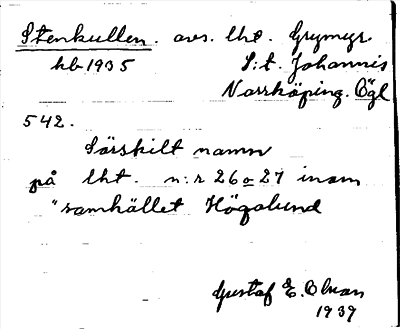 Stenkullen. avs. lht. Grymyr.
hb 1935 S:t. Johannis
Norrköping. Ögl
542.
Särskilt namn
på lht. n:r 26 o 27 inom
"samhället Högalund
Gustaf E. Olsson
1939